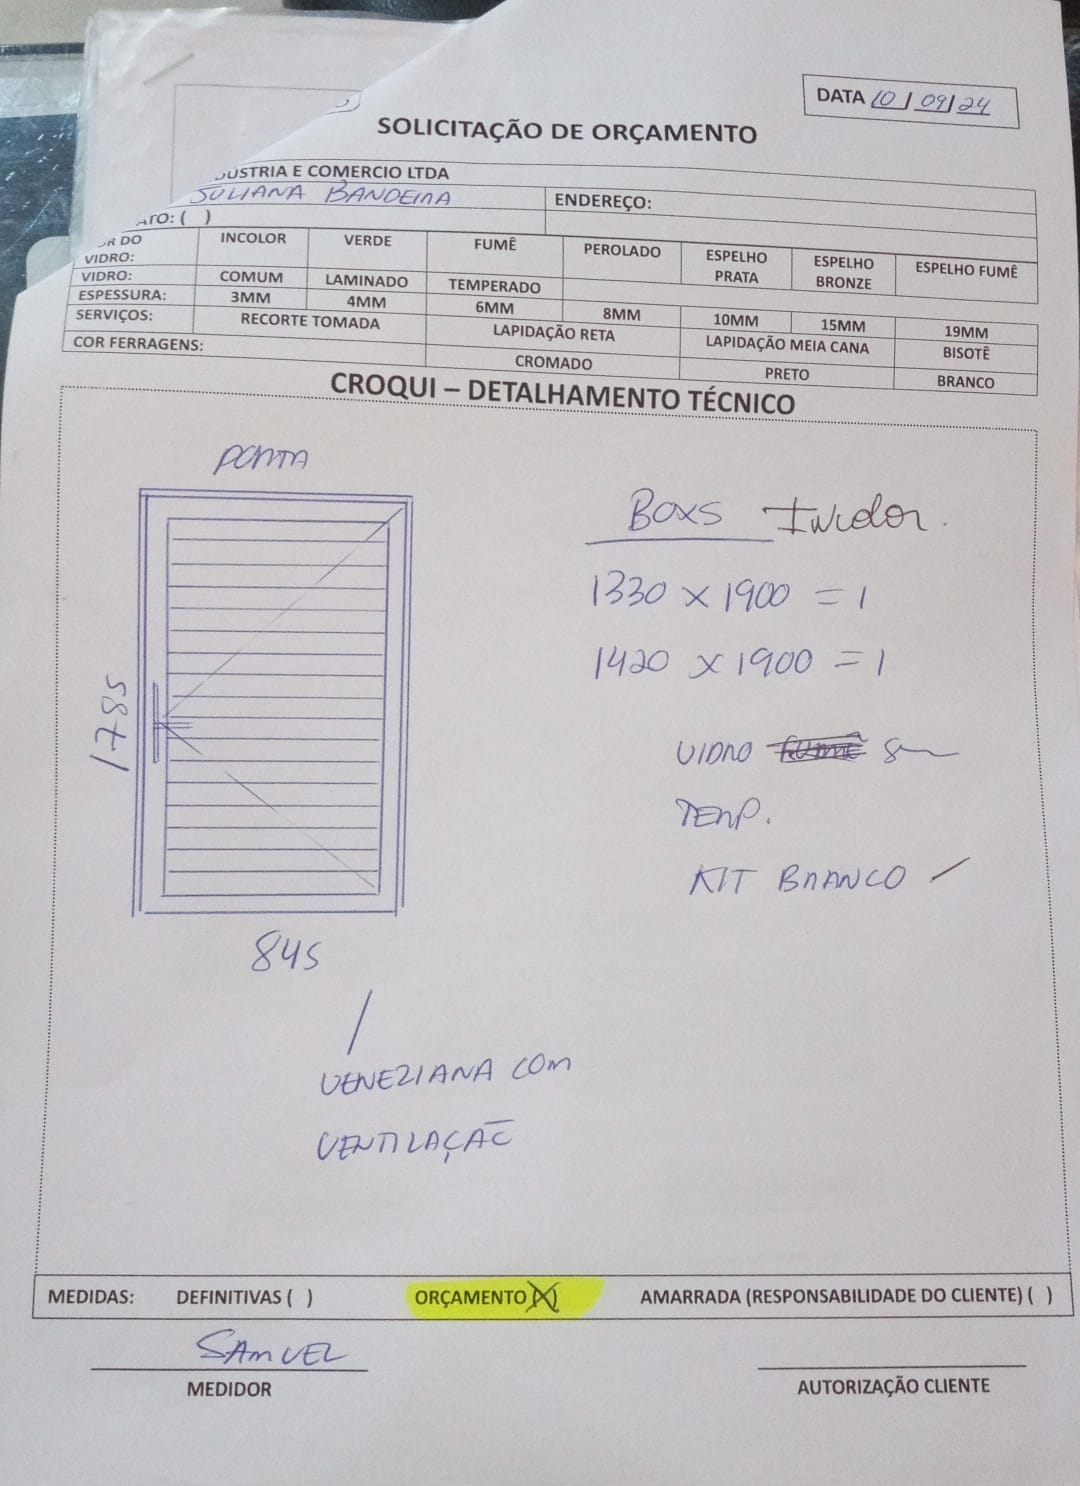 DATA 10/09/24
SOLICITAÇÃO DE ORÇAMENTO
DUSTRIA E COMERCIO LTDA
JULIANA BANDEIRA
ENDEREÇO:
ATO: ( )
OR DO VIDRO: INCOLOR VERDE FUMÊ PEROLADO ESPELHO PRATA ESPELHO BRONZE ESPELHO FUMÊ
VIDRO: COMUM LAMINADO TEMPERADO
ESPESSURA: 3MM 4MM 6MM 8MM 10MM 15MM 19MM
SERVIÇOS: RECORTE TOMADA LAPIDAÇÃO RETA LAPIDAÇÃO MEIA CANA BISOTÊ
COR FERRAGENS: CROMADO PRETO BRANCO
CROQUI – DETALHAMENTO TÉCNICO
PORTA
1785
845
VENEZIANA COM
VENTILAÇÃO
BOXS Incolor.
1330 X 1900 = 1
1420 X 1900 = 1
VIDRO
TEMP.
KIT BRANCO
MEDIDAS: DEFINITIVAS ( ) ORÇAMENTO (X) AMARRADA (RESPONSABILIDADE DO CLIENTE) ( )
SAMUEL
MEDIDOR
AUTORIZAÇÃO CLIENTE